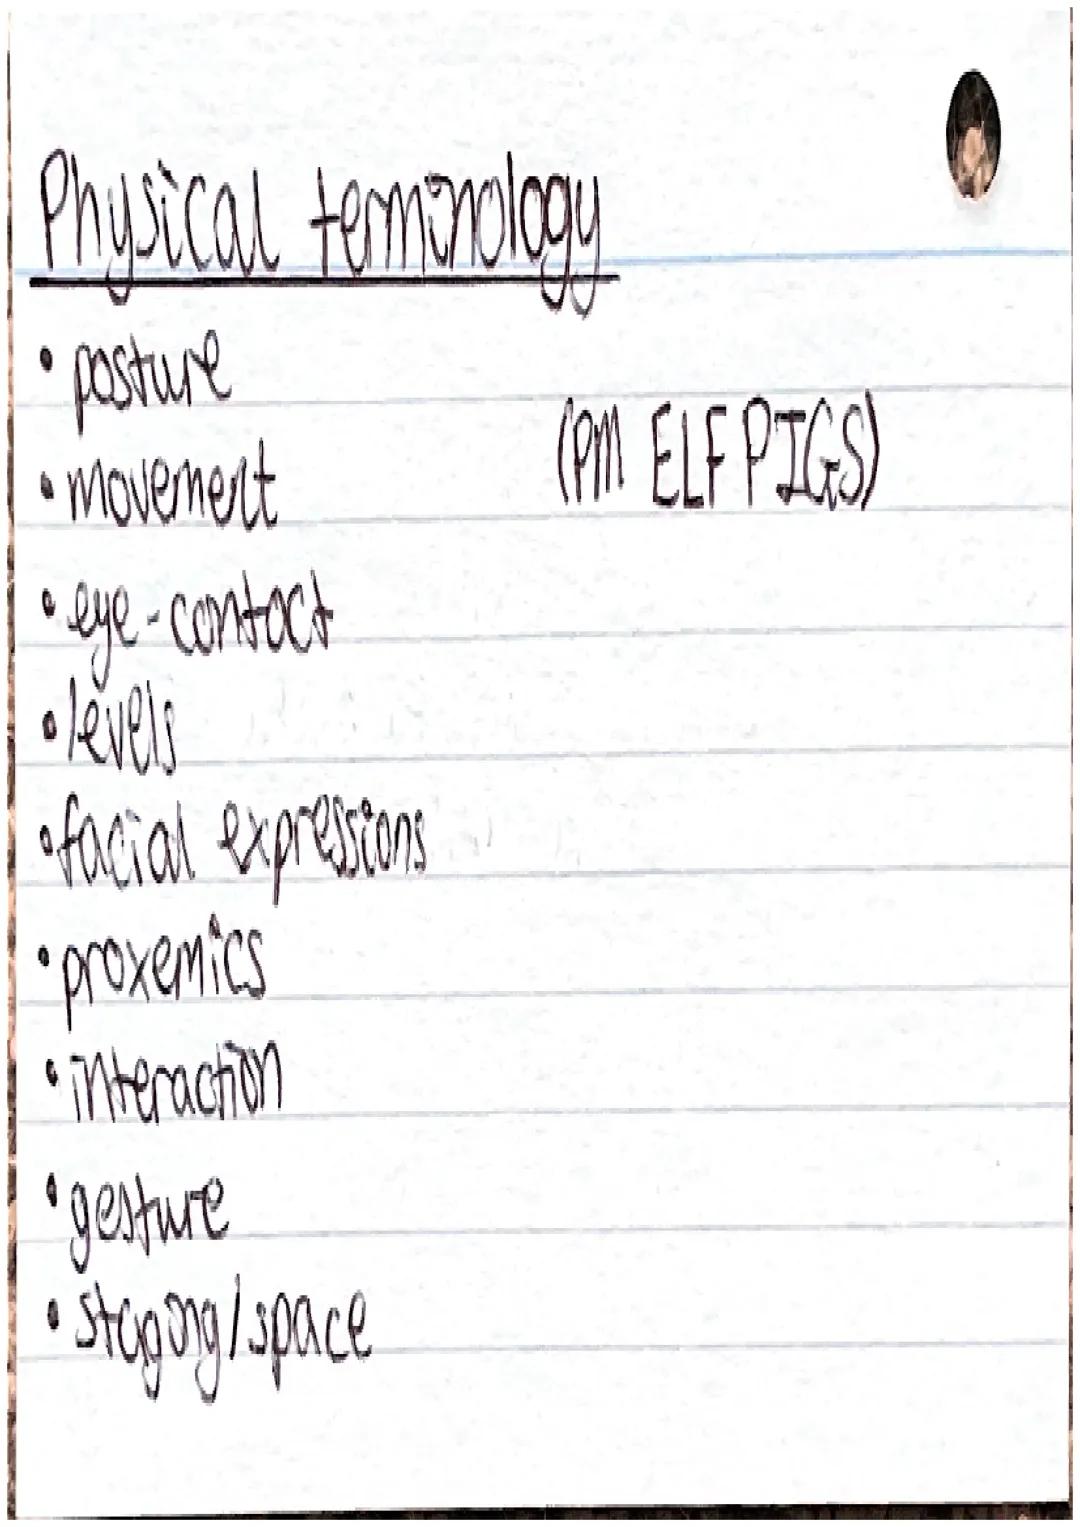 Physical terminology
• posture
(PM ELF PIGS)
• movement
• eye-contact
• levels
• facial expressions
• proxemics
• interaction
• gesture
• staging/space